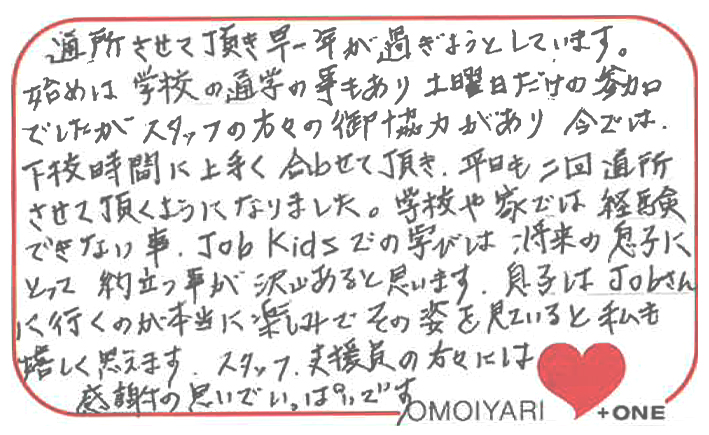 通所させて頂き早一年が過ぎようとしています。
始めは学校の通学の事もあり土曜日だけの参加
でしたがスタッフの方々の御協力があり今では、
下校時間に上手く合わせて頂き、平日も二回通所
させて頂くようになりました。学校や家では経験
できない事、Job Kidsでの学びは、将来の息子に
とって 約立つ事が沢山あると思います、息子はJobさん
に行くのが本当に楽しみでその姿を見ていると私も
嬉しく思えます、スタッフ、支援員の方々には
感謝の思いでいっぱいです
OMOIYARI +ONE